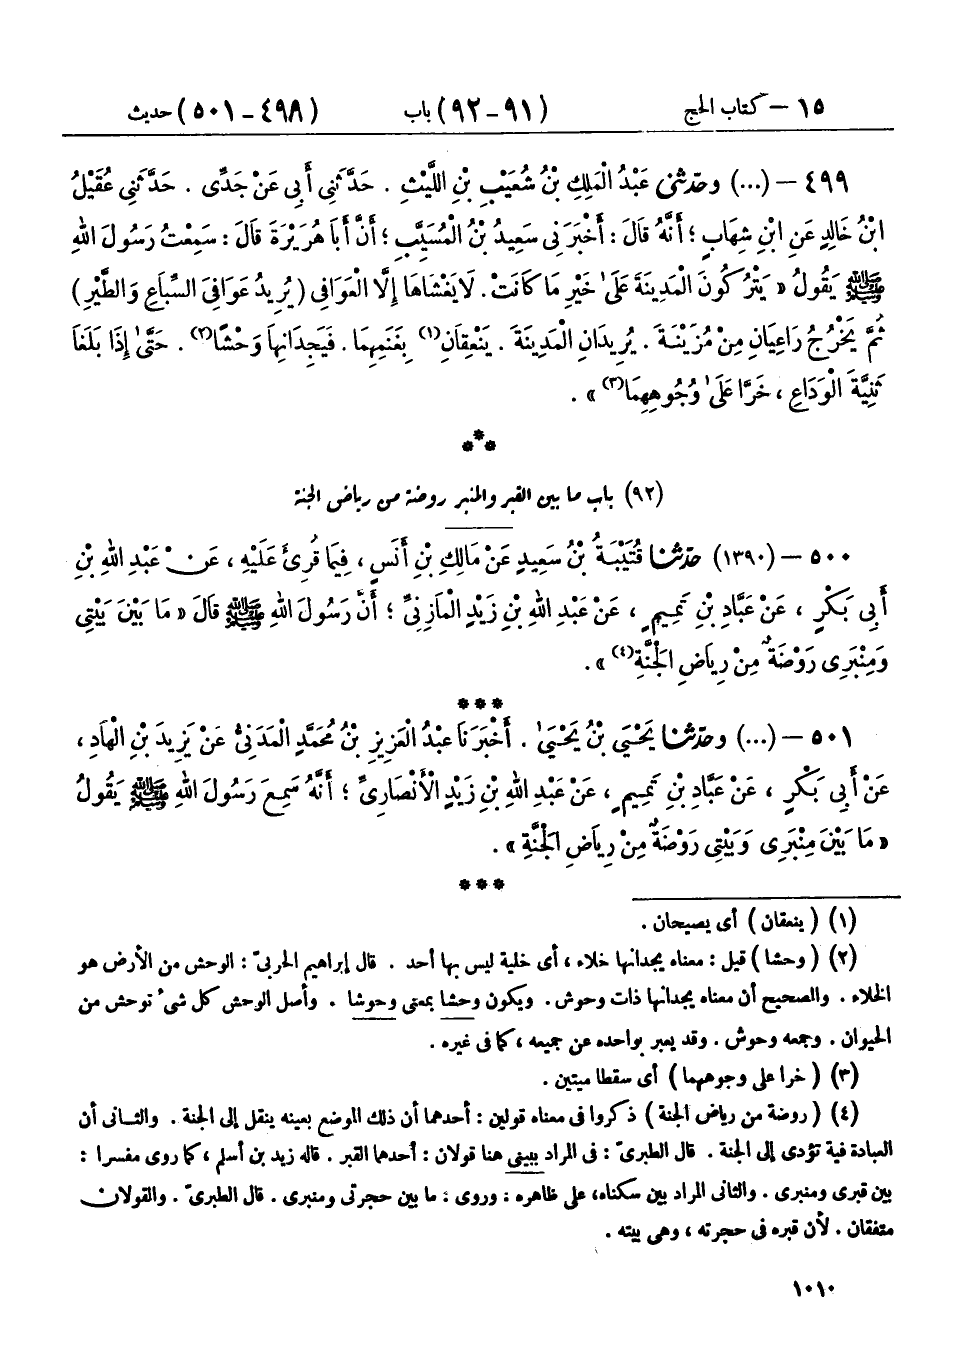 ١٥ – كتاب الحج (٩١ – ٩٢) باب (٤٩٨ – ٥٠١) حديث
٤٩٩ – (...) وحَدَّثَنِي عَبْدُ الْمَلِكِ بْنُ شُعَيْبِ بْنِ اللَّيْثِ . حَدَّثَنِي أَبِي عَنْ جَدِّي . حَدَّثَنِي عُقَيْلُ
ابْنُ خَالِدٍ عَنِ ابْنِ شِهَابٍ ؛ أَنَّهُ قَالَ : أَخْبَرَنِي سَعِيدُ بْنُ الْمُسَيَّبِ ؛ أَنَّ أَبَا هُرَيْرَةَ قَالَ : سَمِعْتُ رَسُولَ اللهِ
ﷺ يَقُولُ « يَتْرُكُونَ الْمَدِينَةَ عَلَىٰ خَيْرِ مَا كَانَتْ . لَا يَغْشَاهَا إِلَّا الْعَوَافِي ( يُرِيدُ عَوَافِيَ السِّبَاعِ وَالطَّيْرِ )
ثُمَّ يَخْرُجُ رَاعِيَانِ مِنْ مُزَيْنَةَ . يُرِيدَانِ الْمَدِينَةَ . يَنْعِقَانِ(١) بِغَنَمِهِمَا . فَيَجِدَانِهَا وَحْشًا(٢) . حَتَّىٰ إِذَا بَلَغَا
ثَنِيَّةَ الْوَدَاعِ ، خَرَّا عَلَىٰ وُجُوهِهِمَا(٣) » .
***
(٩٢) باب ما بين القبر والمنبر روضة من رياض الجنة
٥٠٠ – (١٣٩٠) حَدَّثَنَا قُتَيْبَةُ بْنُ سَعِيدٍ عَنْ مَالِكِ بْنِ أَنَسٍ ، فِيمَا قُرِئَ عَلَيْهِ ، عَنْ عَبْدِ اللهِ بْنِ
أَبِي بَكْرٍ ، عَنْ عَبَّادِ بْنِ تَمِيمٍ ، عَنْ عَبْدِ اللهِ بْنِ زَيْدٍ الْمَازِنِيِّ ؛ أَنَّ رَسُولَ اللهِ ﷺ قَالَ « مَا بَيْنَ بَيْتِي
وَمِنْبَرِي رَوْضَةٌ مِنْ رِيَاضِ الْجَنَّةِ(٤) » .
***
٥٠١ – (...) وحَدَّثَنَا يَحْيَىٰ بْنُ يَحْيَىٰ . أَخْبَرَنَا عَبْدُ الْعَزِيزِ بْنُ مُحَمَّدٍ الْمَدَنِيُّ عَنْ يَزِيدَ بْنِ الْهَادِ ،
عَنْ أَبِي بَكْرٍ ، عَنْ عَبَّادِ بْنِ تَمِيمٍ ، عَنْ عَبْدِ اللهِ بْنِ زَيْدٍ الْأَنْصَارِيِّ ؛ أَنَّهُ سَمِعَ رَسُولَ اللهِ ﷺ يَقُولُ
« مَا بَيْنَ مِنْبَرِي وَبَيْتِي رَوْضَةٌ مِنْ رِيَاضِ الْجَنَّةِ » .
***
(١) ( ينعقان ) أى يصيحان .
(٢) ( وحشا ) قيل : معناه يجدانها خلاء ، أى خلية ليس بها أحد . قال إبراهيم الحربىّ : الوحش من الأرض هو
الخلاء . والصحيح أن معناه يجدانها ذات وحوش . ويكون وحشا بمعنى وحوشا . وأصل الوحش كل شىء توحش من
الحيوان . وجمعه وحوش . وقد يعبر بواحده عن جميعه ، كما فى غيره .
(٣) ( خرا على وجوههما ) أى سقطا ميتين .
(٤) ( روضة من رياض الجنة ) ذكروا فى معناه قولين : أحدهما أن ذلك الموضع بعينه ينقل إلى الجنة . والثانى أن
العبادة فيه تؤدى إلى الجنة . قال الطبرىّ : فى المراد ببيتى هنا قولان : أحدهما القبر . قاله زيد بن أسلم ، كما روى مفسرا :
بين قبرى ومنبرى . والثانى المراد بين سكناه، على ظاهره : وروى : ما بين حجرتى ومنبرى . قال الطبرىّ . والقولان
متفقان . لأن قبره فى حجرته ، وهى بيته .
١٠١٠